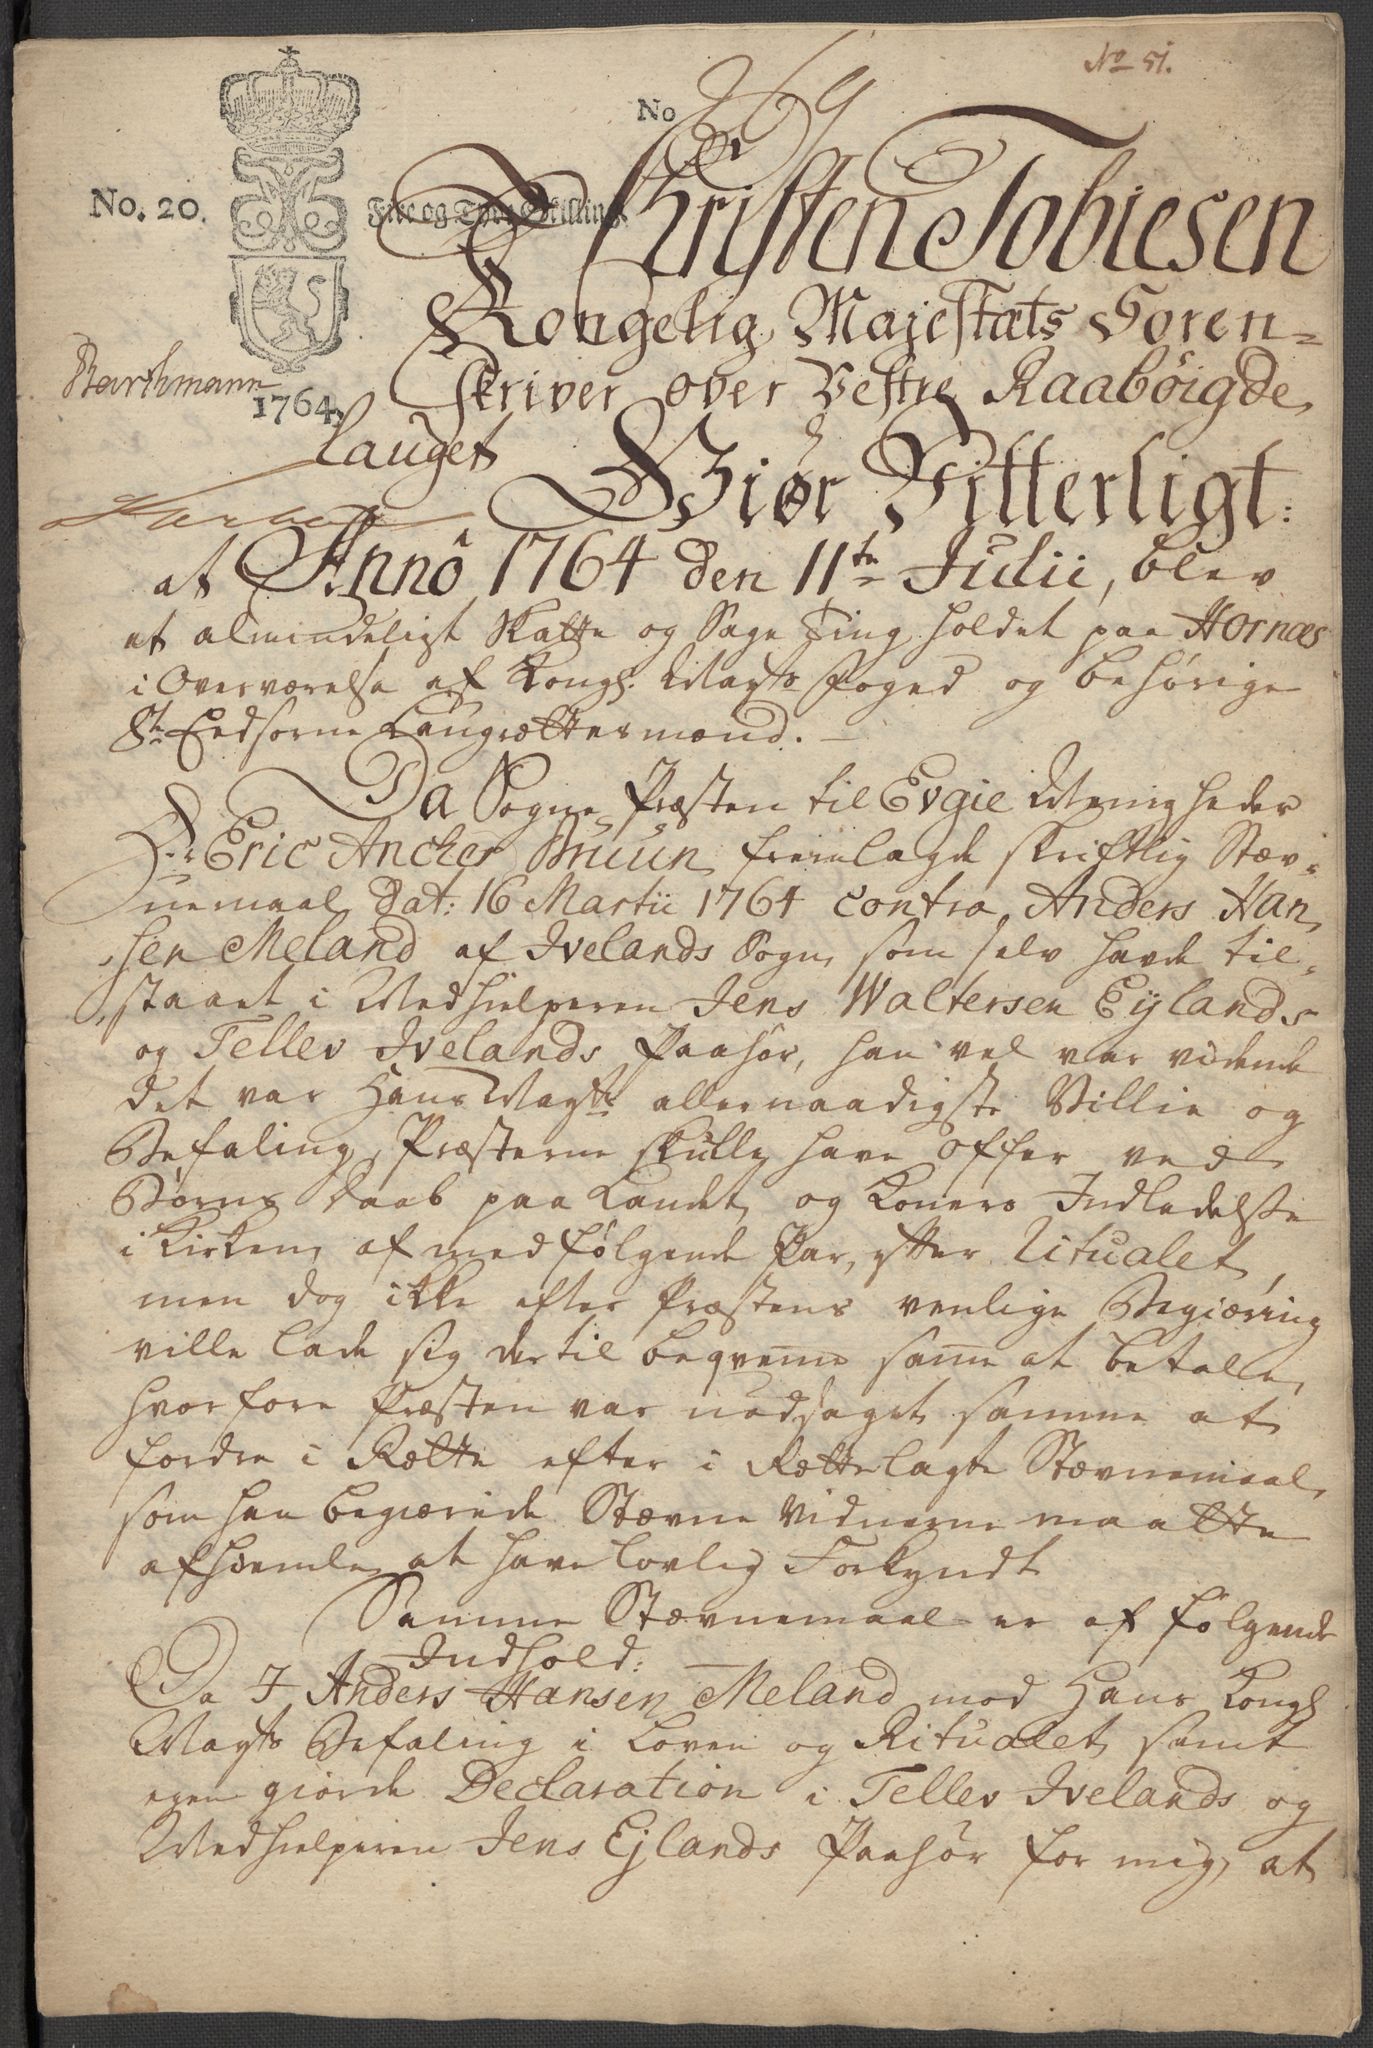 No 51.
No 269
No. 20.
Fire og Tyve Skilling.
Christen Tobiesen
Kongelig Majestæts Soren-
Barthmann
skriver over Vestre Raabøigde
1764.
lauget Giør Vitterligt:
at Anno 1764 den 11te Julii, blev
et almindeligt Skatte og Sage Ting holdet paa Hornæs
i Overværelse af Kongl: Mayts Foged og behørige
8te Eedsorne Laugrettesmænd.
Da Sogne Præsten til Evgie Menigheder
Hr: Eric Ancher Bruun fremlagde skriftlig Stæv-
nemaal Dat: 16 Martii 1764 contra Anders Han-
sen Meland af Ivelands Sogn, som selv havde til-
staaet i Medhielperen Jens Waltersen Eylands
og Tellev Ivelands Paahør, han vel var vidende
det var Hans Mayts allernaadigste Villie og
Befaling, Præsterne skulle have Offer ved
Børns Daab paa Landet, og Koners Indledelse
i Kirken, af medfølgende Par, efter Ritualet,
men dog ikke efter Præstens venlige Begiæring
ville lade sig dertil beqvemme samme at betalle,
hvorfore Præsten var nødsaget samme at
fordre i Rætte efter i Rættelagte Stævnemaal,
som han begiærede Stævne Vidnerne maatte
afhiemle, at have lovlig Forkyndt
Samme Stævnemaal er af følgende
Indhold:
Da I Anders Hansen Meland mod Hans Kongl
Mayts Befaling i Loven og Ritualet, samt
egen giorde Declaration i Tellev Ivelands og
Medhielperen Jens Ejlands Paahør for mig, at